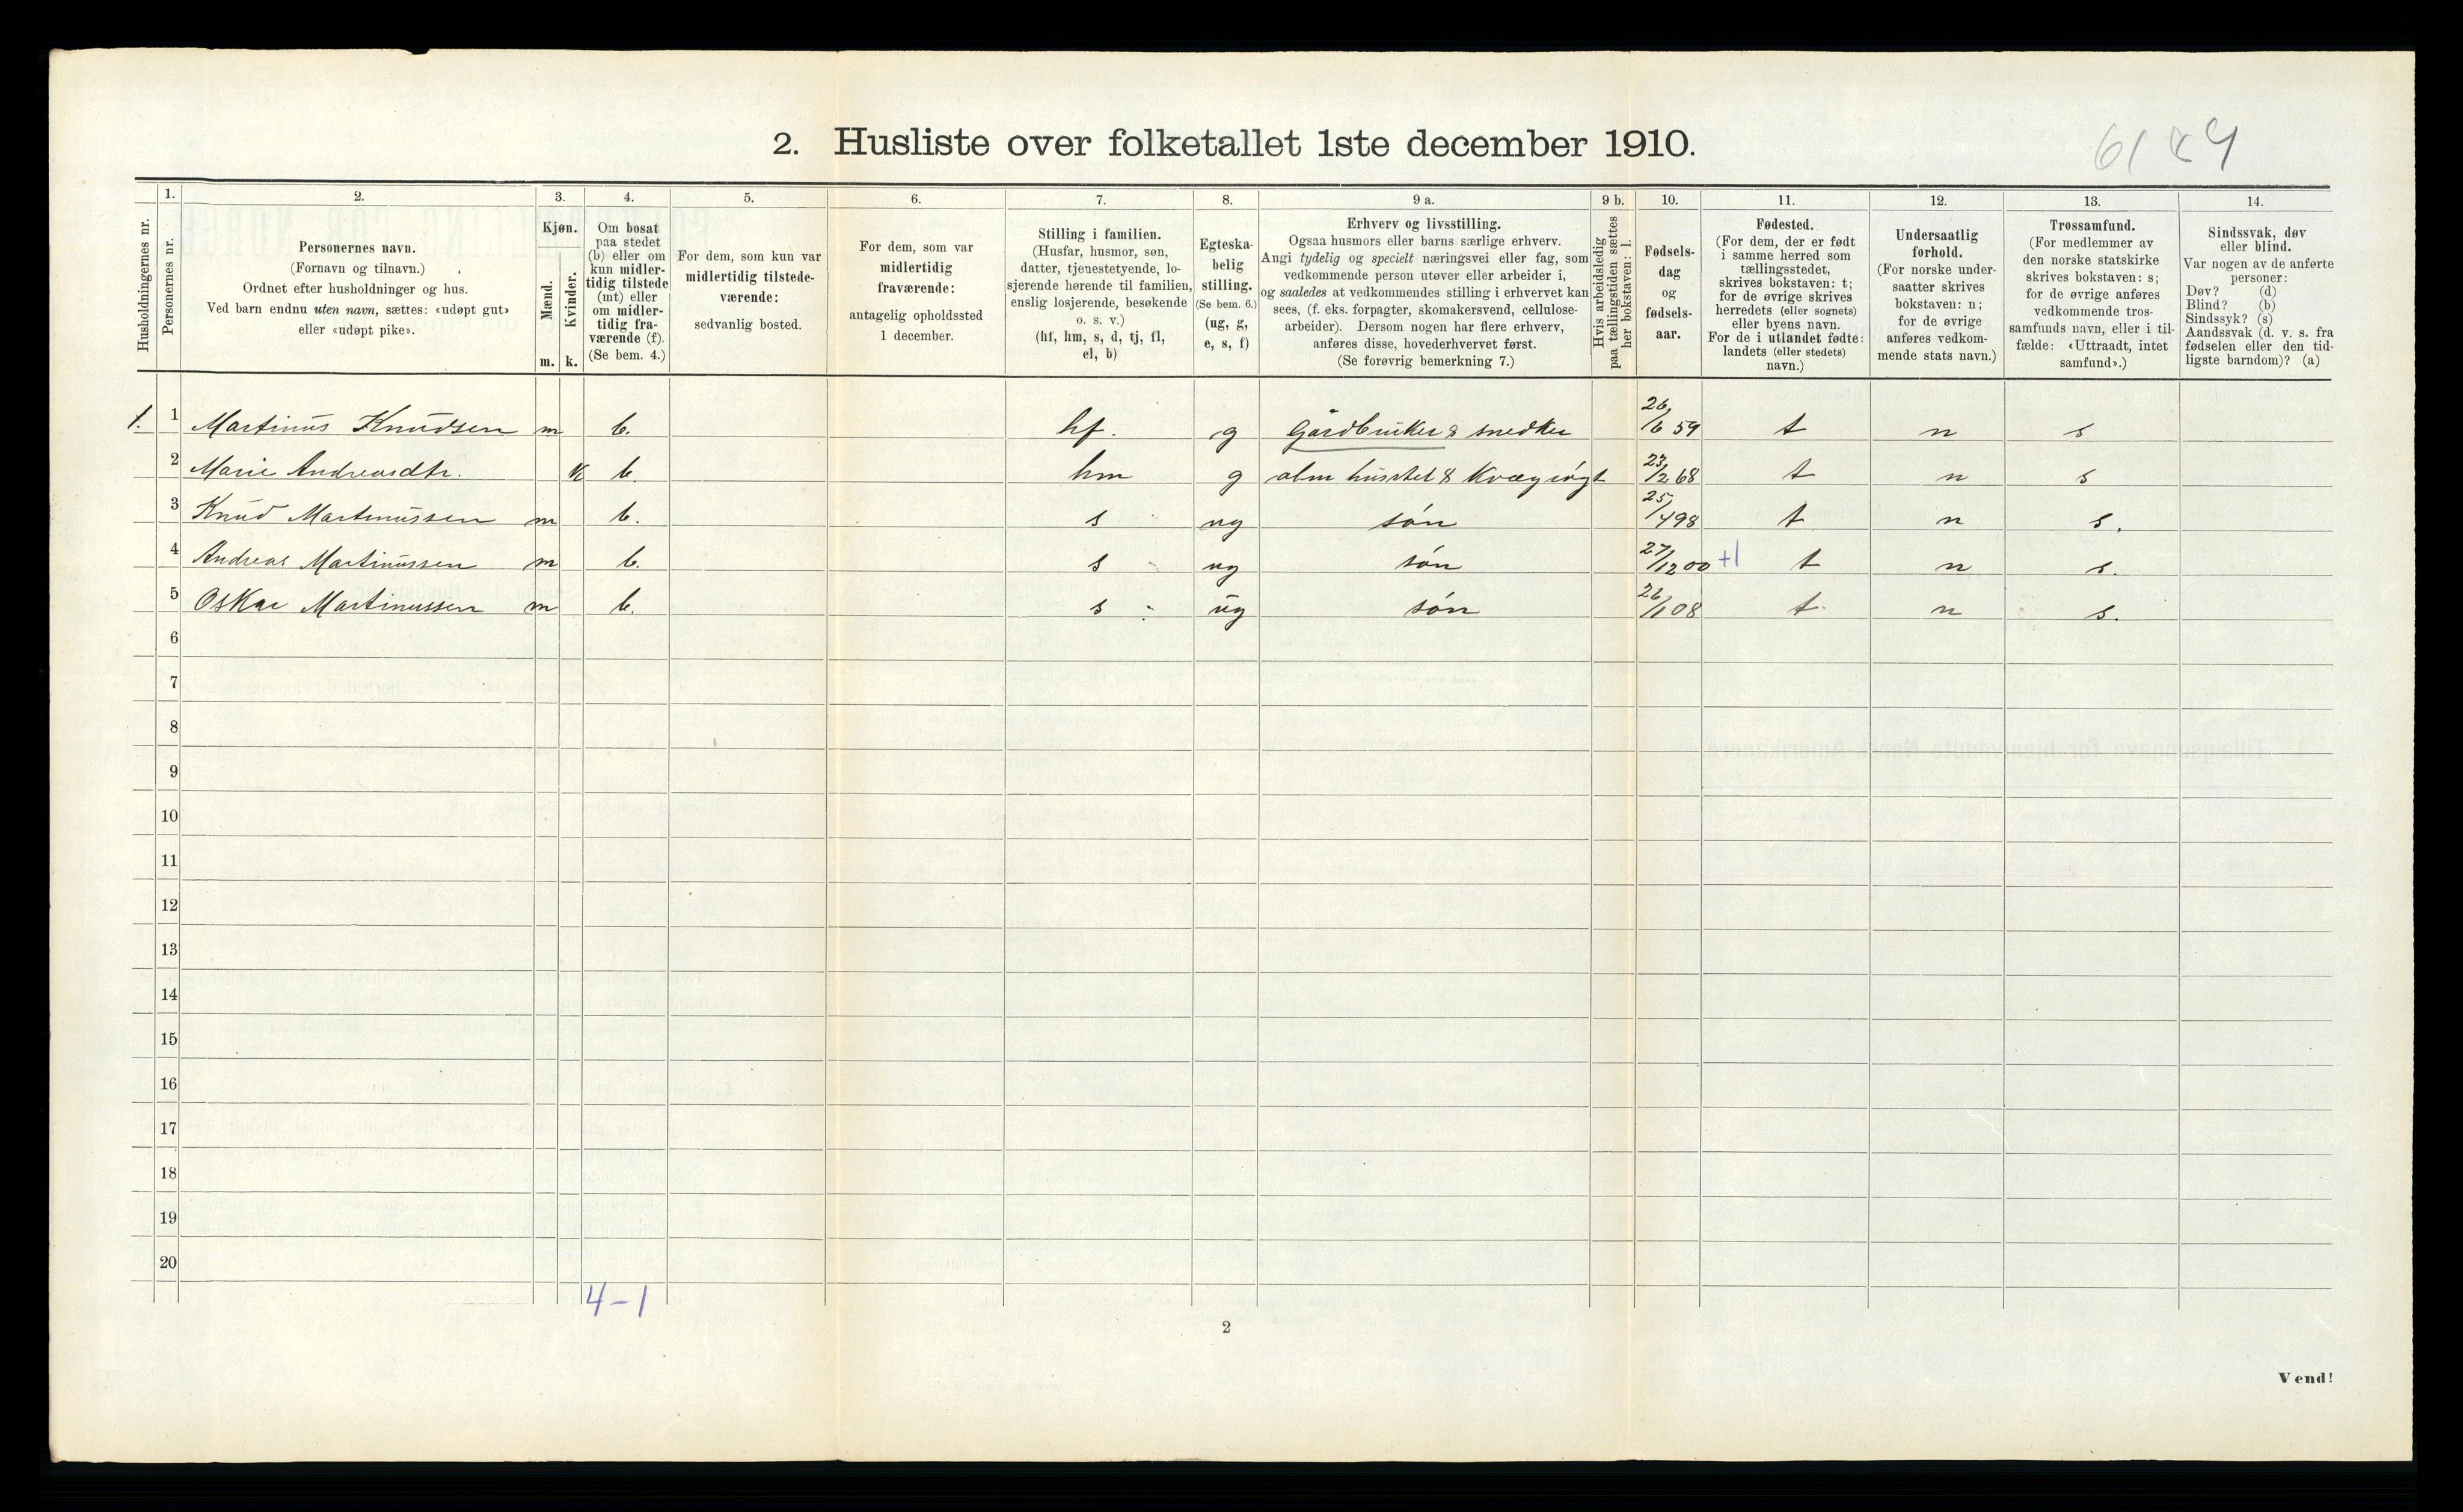 2. Husliste over folketallet 1ste december 1910.
Husholdningernes nr.
1.
Personernes nr.
2.
Personernes navn.
(Fornavn og tilnavn.)
Ordnet efter husholdninger og hus.
Ved barn endnu uten navn, sættes: «udøpt gut»
eller «udøpt pike».
3.
Kjøn.
Mænd.
m.
Kvinder.
k.
4.
Om bosat
paa stedet
(b) eller om
kun midler-
tidig tilstede
(mt) eller
om midler-
tidig fra-
værende (f).
(Se bem. 4.)
5.
For dem, som kun var
midlertidig tilstede-
værende:
sedvanlig bosted.
6.
For dem, som var
midlertidig
fraværende:
antagelig opholdssted
1 december.
7.
Stilling i familien.
(Husfar, husmor, søn,
datter, tjenestetyende, lo-
sjerende hørende til familien,
enslig losjerende, besøkende
o. s. v.)
(hf, hm, s, d, tj, fl,
el, b)
8.
Egteska-
belig
stilling.
(Se bem. 6.)
(ug, g,
e, s, f)
9 a.
Erhverv og livsstilling.
Ogsaa husmors eller barns særlige erhverv.
Angi tydelig og specielt næringsvei eller fag, som
vedkommende person utøver eller arbeider i,
og saaledes at vedkommendes stilling i erhvervet kan
sees, (f. eks. forpagter, skomakersvend, cellulose-
arbeider). Dersom nogen har flere erhverv,
anføres disse, hovederhvervet først.
(Se forøvrig bemerkning 7.)
9 b.
Hvis arbeidsledig
paa tællingstiden sættes
her bokstaven: l.
10.
Fødsels-
dag
og
fødsels-
aar.
11.
Fødested.
(For dem, der er født
i samme herred som
tællingsstedet,
skrives bokstaven: t;
for de øvrige skrives
herredets (eller sognets)
eller byens navn.
For de i utlandet fødte:
landets (eller stedets)
navn.)
12.
Undersaatlig
forhold.
(For norske under-
saatter skrives
bokstaven: n;
for de øvrige
anføres vedkom-
mende stats navn.)
13.
Trossamfund.
(For medlemmer av
den norske statskirke
skrives bokstaven: s;
for de øvrige anføres
vedkommende tros-
samfunds navn, eller i til-
fælde: «Uttraadt, intet
samfund».)
14.
Sindssvak, døv
eller blind.
Var nogen av de anførte
personer:
Døv? (d)
Blind? (b)
Sindssyk? (s)
Aandssvak (d. v. s. fra
fødselen eller den tid-
ligste barndom)? (a)
1. 1 Martinus Knudsen m b. hf. g Gårdbruker & snedker 26/6 59 t n s
2 Marie Andreasdtr. k b. hm g alm husstel & Kvægrøgt 23/2 68 t n s
3 Knud Martinussen m b. s ug søn 25/4 98 t n s.
4 Andreas Martinussen m b. s ug søn 27/12 00 +1 t n s.
5 Oskar Martinussen m b. s ug søn 26/1 08 t. n s.
6
7
8
9
10
11
12
13
14
15
16
17
18
19
20
4-1
2
Vend!